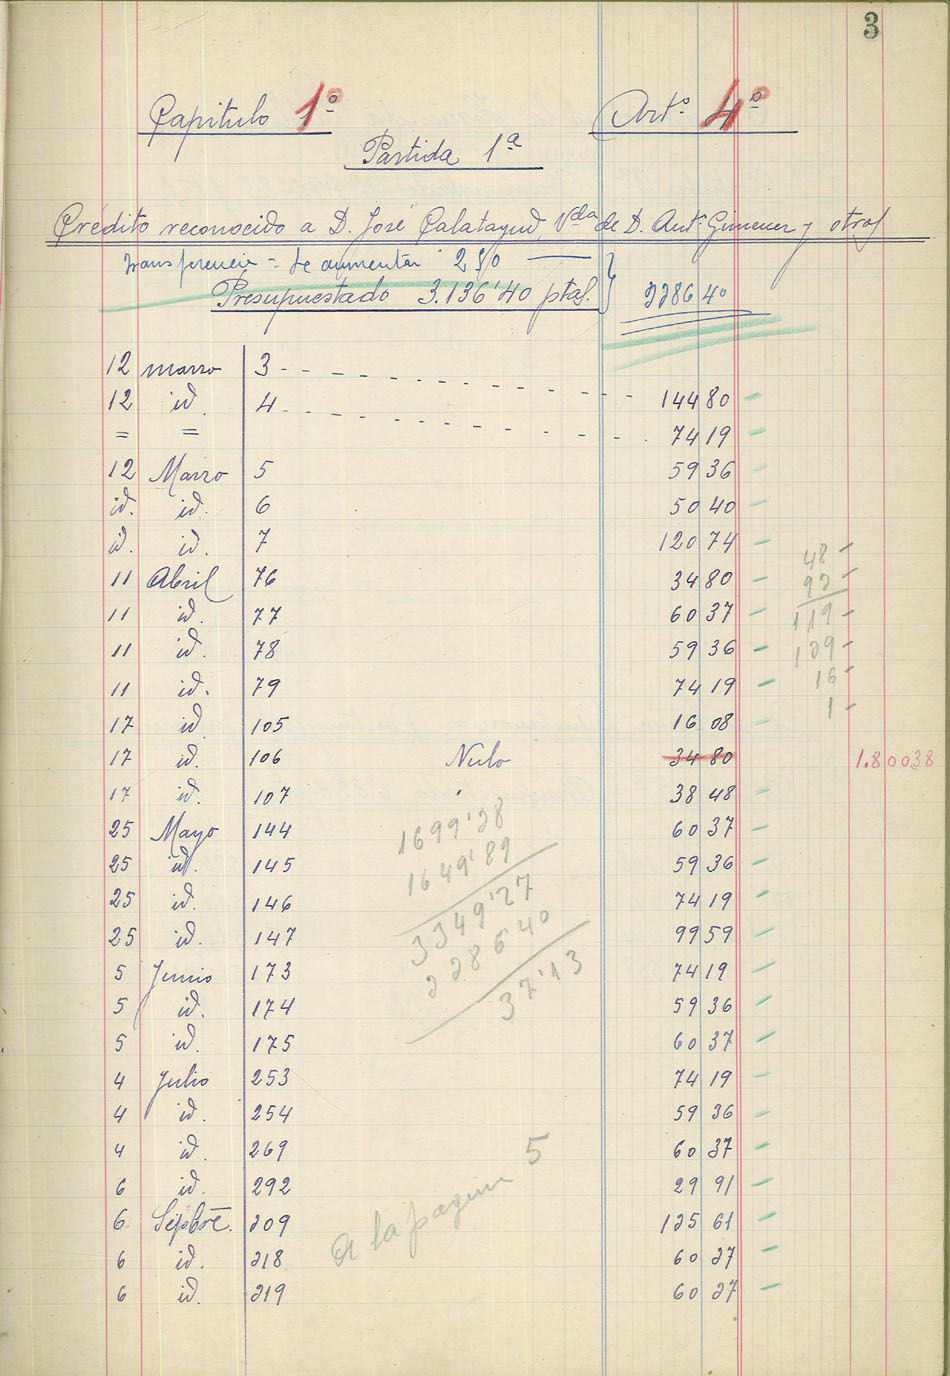 3
Capitulo 1º Artº 4º
Partida 1ª
Crédito reconocido a D. José Calatayud, Vda de D. Antº Gimenez y otros
transferencia = Se aumentan 250
Presupuestado 3.136'40 ptas. 3386 40
12 marzo 3
12 id. 4 144 80
= = 74 19
12 Marzo 5 59 36
id. id. 6 50 40
id. id. 7 120 74
11 Abril 76 34 80
11 id. 77 60 37
11 id. 78 59 36
11 id. 79 74 19
17 id. 105 16 08
17 id. 106 Nulo 34 80
17 id. 107 38 48
25 Mayo 144 60 37
25 id. 145 59 36
25 id. 146 74 19
25 id. 147 99 59
5 Junio 173 74 19
5 id. 174 59 36
5 id. 175 60 37
4 Julio 253 74 19
4 id. 254 59 36
4 id. 269 60 37
6 id. 292 29 91
6 Sepbre. 309 125 61
6 id. 318 60 37
6 id. 319 60 37
48
92
119
129
16
1
1.80038
1699'38
1649'89
3349'27
3386'40
37'13
A la pagina 5